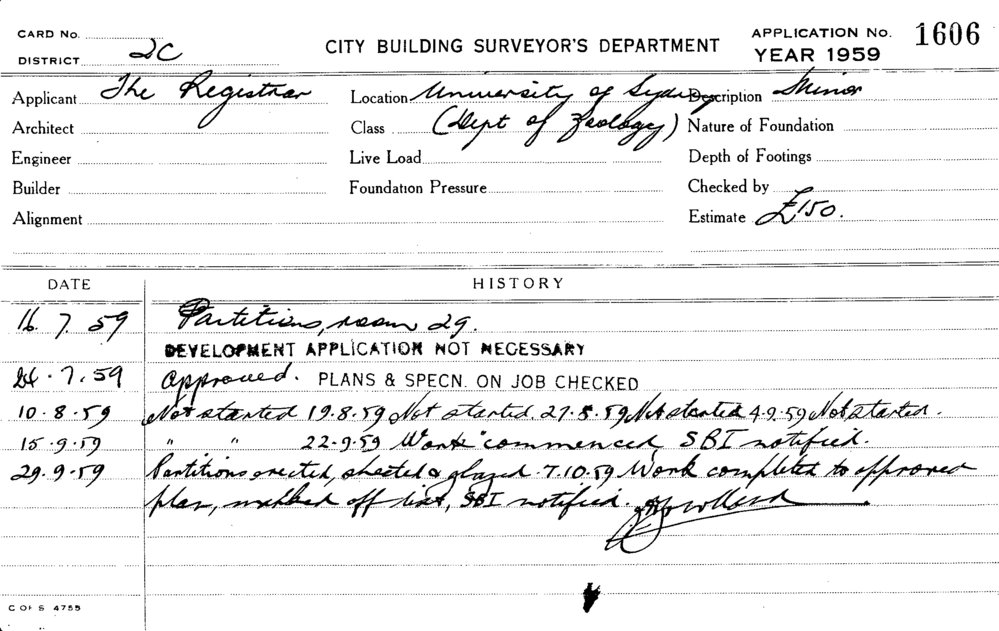 CARD No.
DISTRICT 2C
CITY BUILDING SURVEYOR'S DEPARTMENT
APPLICATION No. 1606
YEAR 1959
Applicant The Registrar Location University of Sydney Description Minor
Architect Class (Dept of Zoology) Nature of Foundation
Engineer Live Load Depth of Footings
Builder Foundation Pressure Checked by
Alignment Estimate £150.
DATE HISTORY
16. 7. 59 Partitions, room 29.
DEVELOPMENT APPLICATION NOT NECESSARY
24.7.59 Approved. PLANS & SPECN. ON JOB CHECKED
10.8.59 Not started 19.8.59 Not started 27.8.59 Not started 4.9.59 Not started.
15.9.59 " " 22.9.59 Work commenced, SBI notified.
29.9.59 Partitions erected, sheeted & glazed 7.10.59 Work completed to approved
plan, marked off list, SBI notified.
C OF S 4755